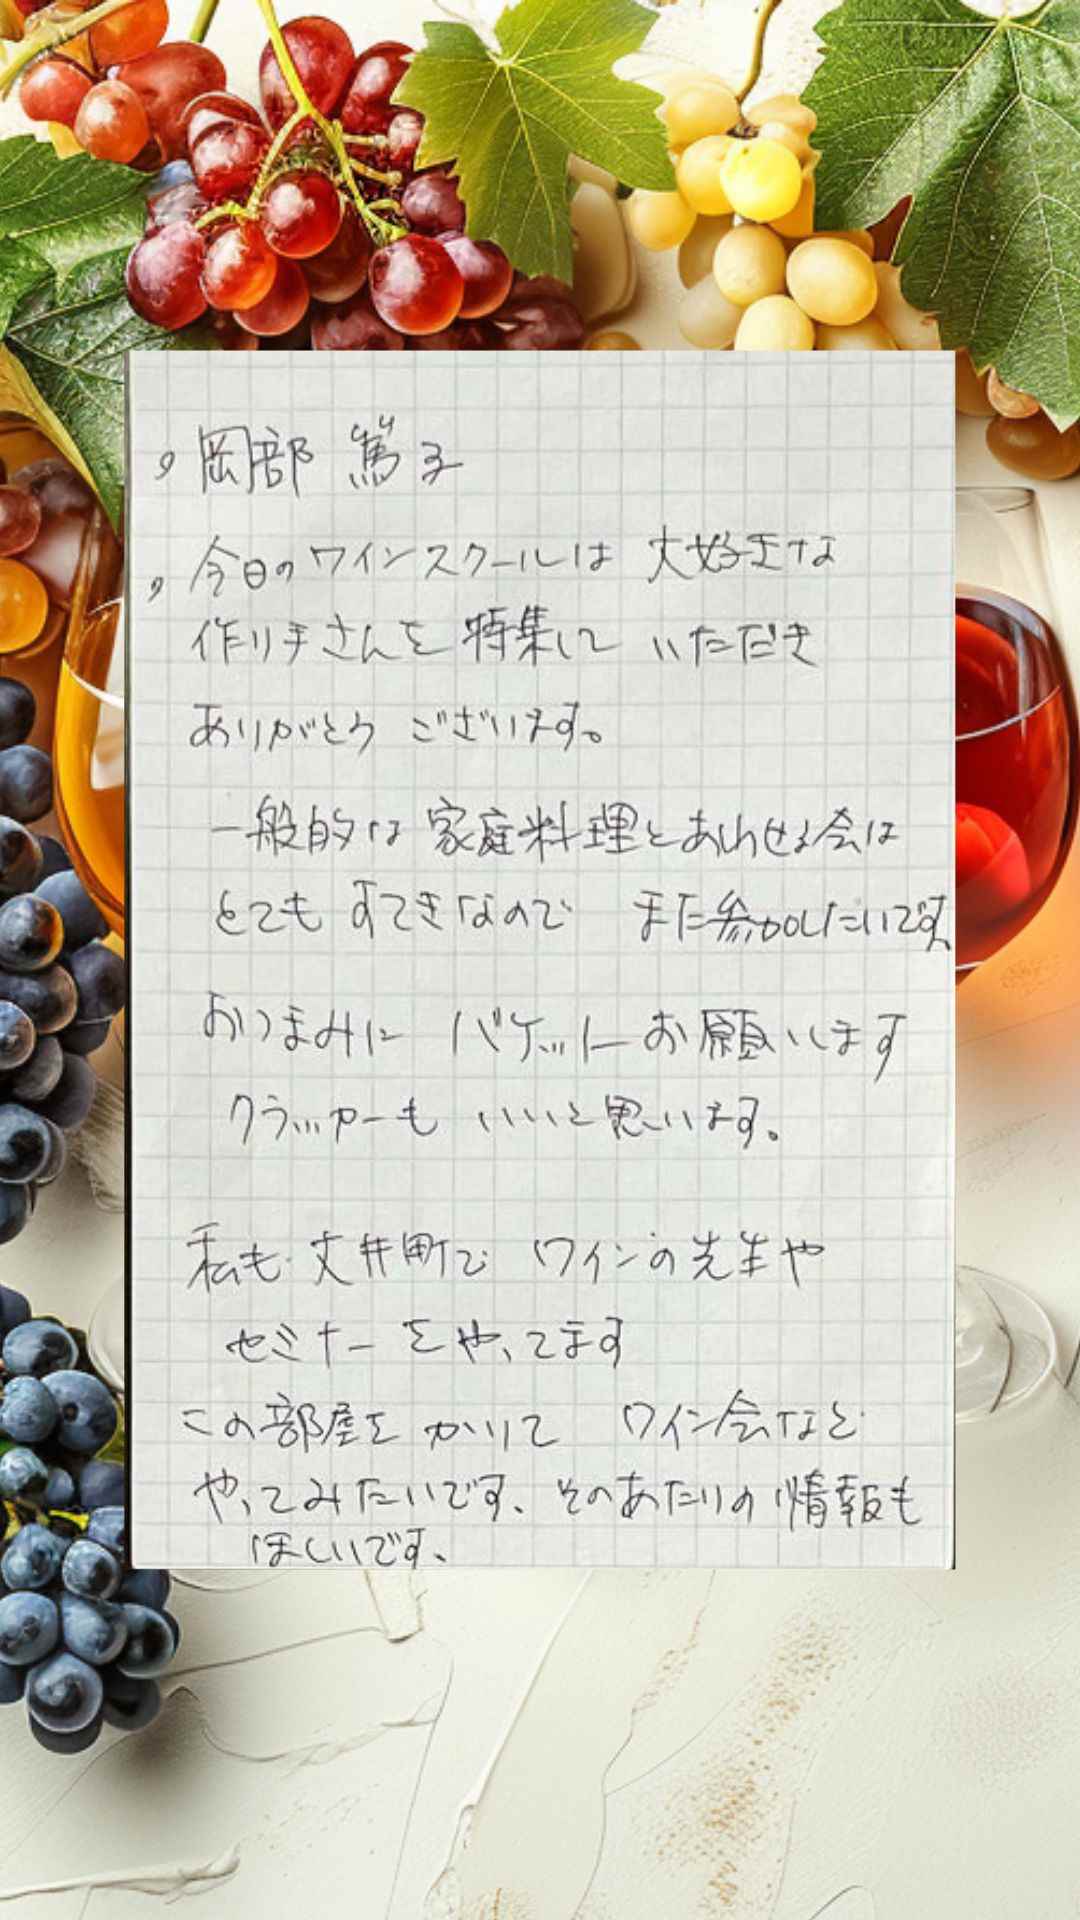 岡部 篤子
今日のワインスクールは 大好きな
作り手さんを 特集して いただき
ありがとう ございます。
一般的な 家庭料理とあわせる会は
とても すてきなので また参加したいです
おつまみに バゲット お願いします
クラッカーも いいと思います。
私も 大井町で ワインの先生や
セミナーをやってます
この部屋を かりて ワイン会など
やってみたいです、そのあたりの情報も
ほしいです、